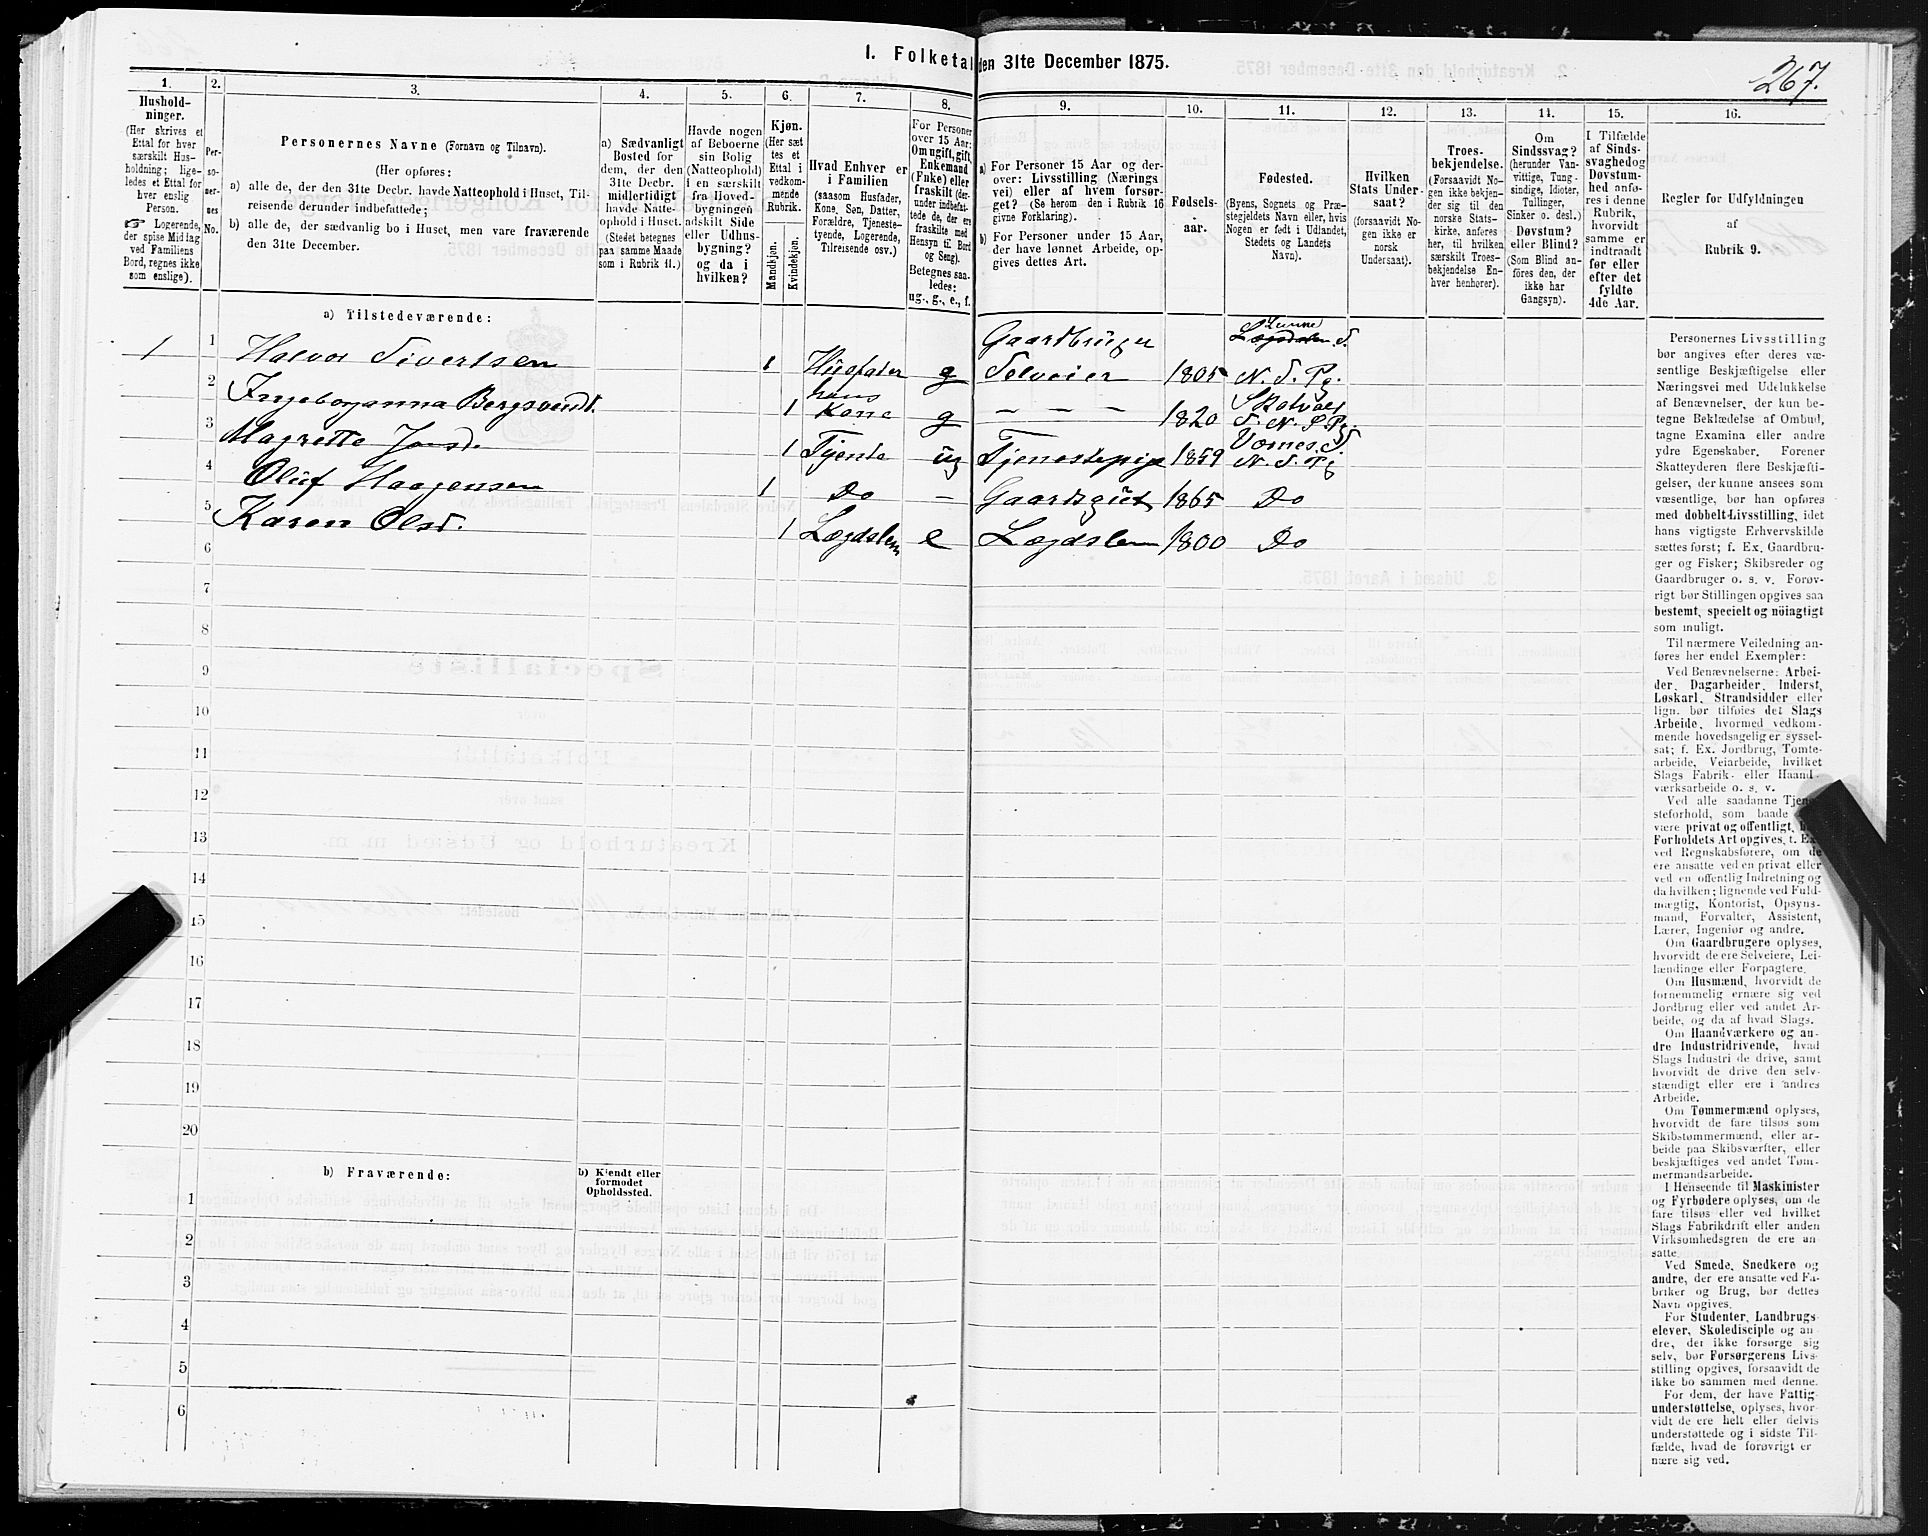 267.
1. Folketal den 31te December 1875.
1.
Hushold-
ninger.
(Her skrives et
Ettal for hver
særskilt Hus-
holdning; lige-
ledes et Ettal for
hver enslig
Person.
☞ Logerende,
der spise Middag
ved Familiens
Bord, regnes ikke
som enslige).
2.
Per-
so-
ner-
nes
No.
3.
Personernes Navne (Fornavn og Tilnavn).
(Her opføres:
a) alle de, der den 31te Decbr. havde Natteophold i Huset, Til-
reisende derunder indbefattede;
b) alle de, der sædvanlig bo i Huset, men vare fraværende
den 31te December.
4.
a) Sædvanligt
Bosted for
dem, der den
31te Decbr.
midlertidigt
havde Natte-
ophold i Huset.
(Stedet betegnes
paa samme Maade
som i Rubrik 11.)
5.
Havde nogen
af Beboerne
sin Bolig
(Natteophold)
i en særskilt
fra Hoved-
bygningen
adskilt Side
eller Udhus-
bygning?
og da i
hvilken?
6.
Kjøn.
(Her sæt-
tes et
Ettal i
vedkom-
mende
Rubrik.
Mandkjøn.
Kvindekjøn.
7.
Hvad Enhver er
i Familien
(saasom Husfader,
Kone, Søn, Datter,
Forældre, Tjeneste-
tyende, Logerende,
Tilreisende osv.)
8.
For Personer
over 15 Aar:
Om ugift, gift,
Enkemand
(Enke) eller
fraskilt (der-
under indbefat-
tede de, der ere
fraskilte med
Hensyn til Bord
og Seng).
Betegnes saa-
ledes:
ug., g., e., f.
9.
a) For Personer 15 Aar og der-
over: Livsstilling (Nærings
vei) eller af hvem forsør-
get? (Se herom den i Rubrik 16
givne Forklaring).
b) For Personer under 15 Aar,
der have lønnet Arbeide, op-
gives dettes Art.
10.
Fødsels-
aar.
11.
Fødested.
(Byens, Sognets og Præ-
stegjeldets Navn eller, hvis
Nogen er født i Udlandet,
Stedets og Landets
Navn).
12.
Hvilken
Stats Under-
saat?
(forsaavidt No-
gen ikke er
norsk
Undersaat).
13.
Troes-
bekjendelse.
(Forsaavidt No-
gen ikke bekjen-
der sig til den
norske Stats-
kirke, anføres
her, til hvilken
særskilt Troes-
bekjendelse En-
hver henhører).
14.
Om
Sindssvag?
(herunder Van-
vittige, Tung-
sindige, Idioter,
Tullinger,
Sinker o. desl.)
Døvstum?
eller Blind?
(Som Blind an-
føres den, der
ikke har
Gangsyn).
15.
I Tilfælde
af Sinds-
svaghed og
Døvstum-
hed anfø-
res i denne
Rubrik,
hvorvidt
samme er
indtraadt
før eller
efter det
fyldte
4de Aar.
16.
Regler for Udfyldningen
af
Rubrik 9.
a) Tilstedeværende:
1 1 Halvor Sivertsen 1 Husfader g Gaardbruger Selveier 1805 Lægdslem S. N. S. Pg.
2 Ingeborganna Bergsvendt. 1 hans Kone g – – – 1820 Skatval S. N. S. Pg.
3 Magrette Jonsd. 1 Tjente ug Tjenestepige 1859 Værnes S. N. S. Pg
4 Oluf Haagensen 1 Do – Gaardsgut 1865 Do
5 Karen Olsd. 1 Lægdslem e Lægdslem 1800 Do
6
7
8
9
10
11
12
13
14
15
16
17
18
19
20
b) Fraværende:
b) Kjendt eller
formodet
Opholdssted.
1
2
3
4
5
6
Personernes Livsstilling
bør angives efter deres væ-
sentlige Beskjæftigelse eller
Næringsvei med Udelukkelse
af Benævnelser, der kun be-
tegne Beklædelse af Ombud,
tagne Examina eller andre
ydre Egenskaber. Forener
Skatteyderen flere Beskjæfti-
gelser, der kunne ansees som
væsentlige, bør han opføres
med dobbelt Livsstilling, idet
hans vigtigste Erhvervskilde
sættes først; f. Ex. Gaardbru-
ger og Fisker; Skibsreder og
Gaardbruger o. s. v. Forøv-
rigt bør Stillingen opgives saa
bestemt, specielt og nöiagtigt
som muligt.
Til nærmere Veiledning an-
føres her endel Exempler:
Ved Benævnelserne: Arbei-
der, Dagarbeider, Inderst,
Løskarl, Strandsidder eller
lign. bør tilføies det Slags
Arbeide, hvormed vedkom-
mende hovedsagelig er syssel-
sat; f. Ex. Jordbrug, Tomte-
arbeide, Veiarbeide, hvilket
Slags Fabrik- eller Haand-
værksarbeide o. s. v.
Ved alle saadanne Tjene-
steforhold, som baade
være privat og offentligt,
Forholdets Art opgives,
ved Regnskabsførere, om de
ere ansatte ved en privat eller
ved en offentlig Indretning og
da hvilken; lignende ved Fuld-
mægtig, Kontorist, Opsyns-
mand, Forvalter, Assistent,
Lærer, Ingeniør og andre.
Om Gaardbrugere oplyses,
hvorvidt de ere Selveiere, Lei-
lændinge eller Forpagtere.
Om Husmænd, hvorvidt de
fornemmelig ernære sig ved
Jordbrug eller ved andet Ar-
beide, og da af hvad Slags.
Om Haandværkere og an-
dre Industridrivende, hvad
Slags Industri de drive, samt
hvorvidt de drive den selv-
stændigt eller ere i andres
Arbeide.
Om Tømmermænd oplyses,
hvorvidt de fare tilsøs som
Skibstømmermænd, eller ar-
beide paa Skibsværfter, eller
beskjæftiges ved andet Tøm-
mermandsarbeide.
I Henseende til Maskinister
og Fyrbødere oplyses, om de
fare tilsøs eller ved hvilket
Slags Fabrikdrift eller anden
Virksomhedsgren de ere an-
satte.
Ved Smede, Snedkere og
andre, der ere ansatte ved Fa-
briker og Brug, bør dettes
Navn opgives.
For Studenter, Landbrugs-
elever, Skoledisciple og an-
dre, der ikke forsørge sig
selv, bør Forsørgerens Livs-
stilling opgives, forsaavidt de
ikke bo sammen med denne.
For dem, der have Fattig-
understøttelse, oplyses, hvor-
vidt de ere helt eller delvis
understøttede og i sidste Til-
fælde, hvad de forøvrigt er
nære sig ved.